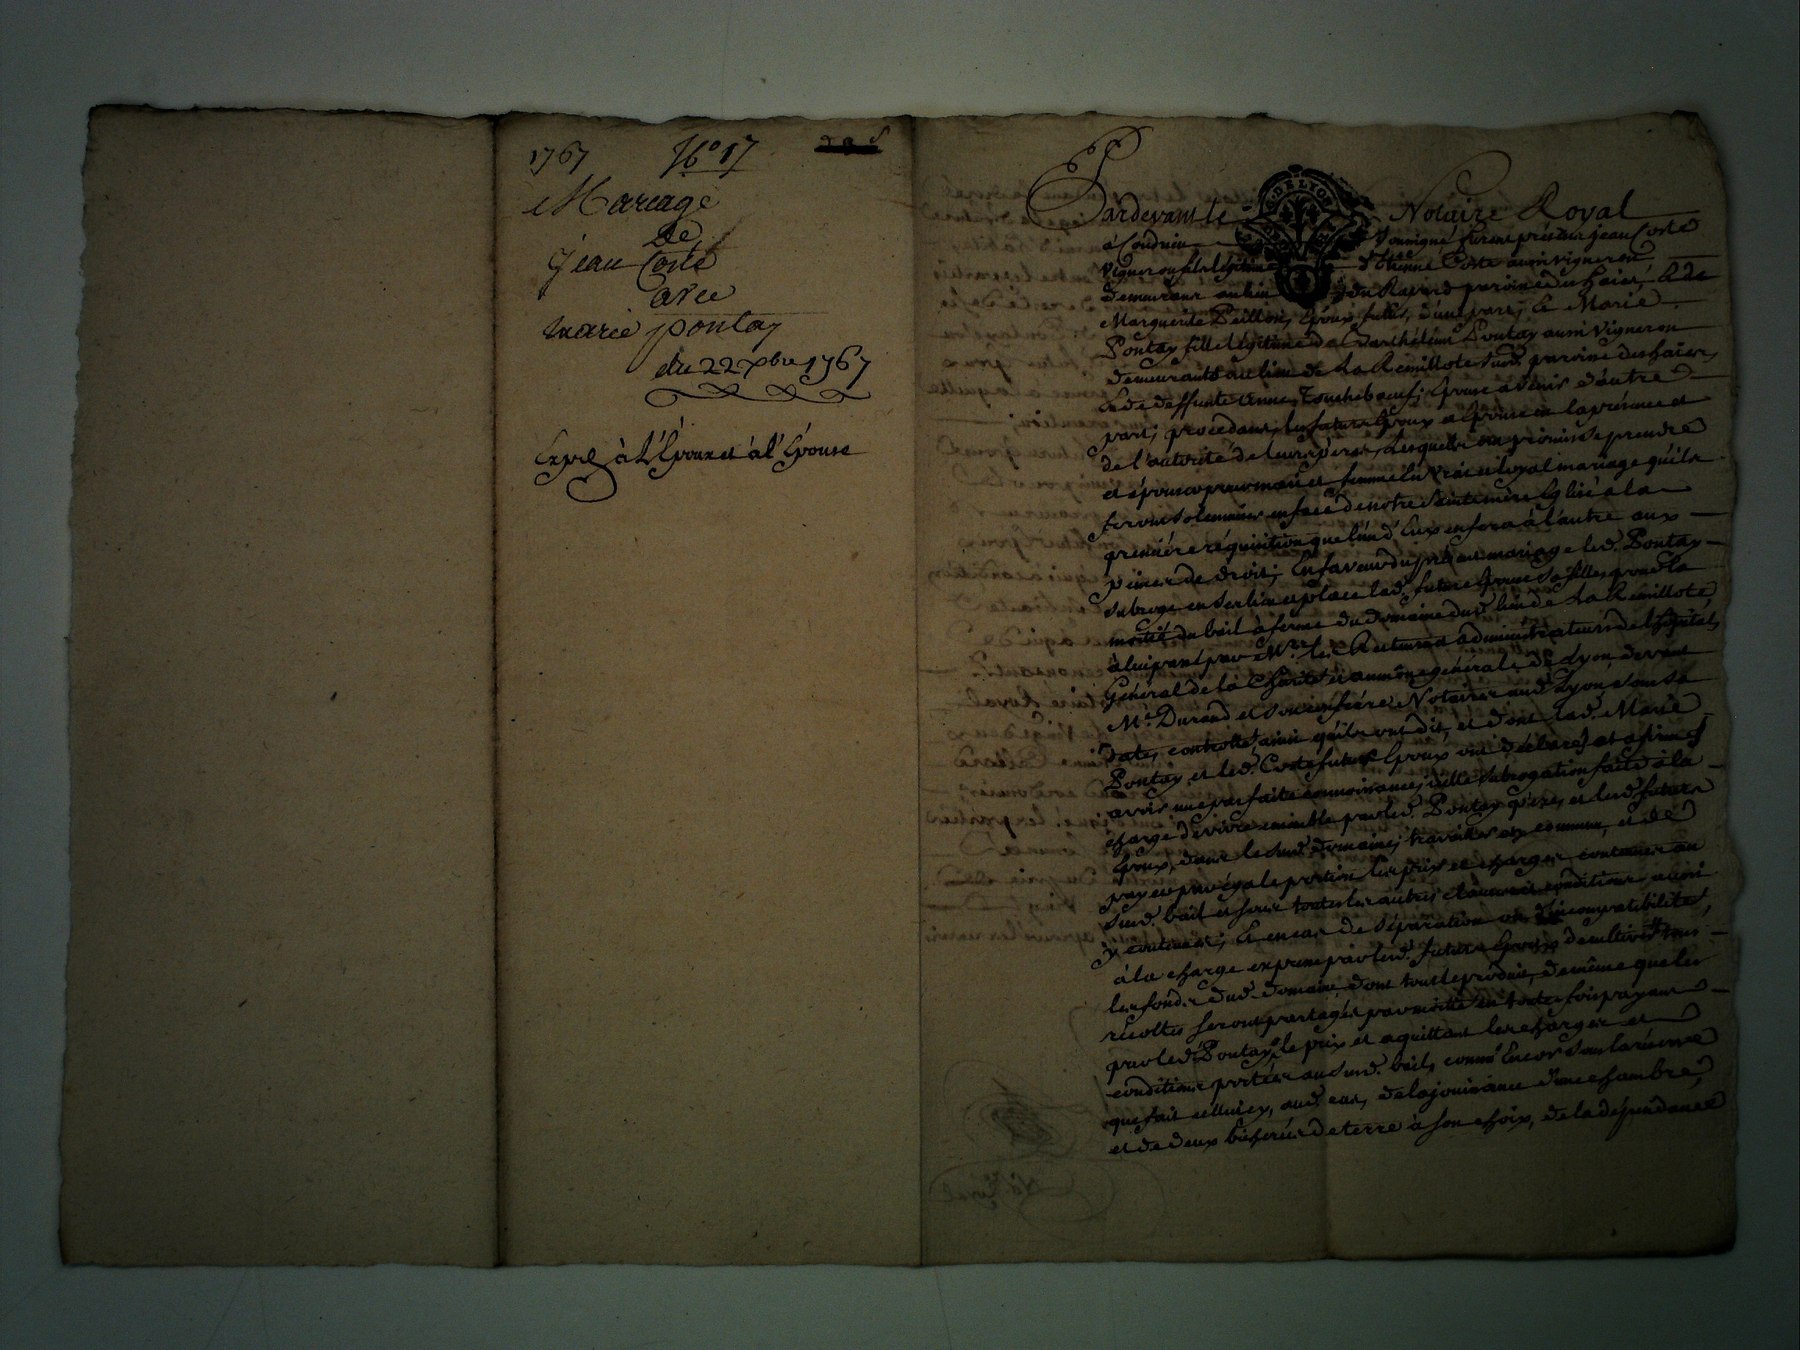 1767 N.º 17
Mariage
De
Jean Coste
avec
Marie pontay
du 22 xbre 1767
Expé à L'Epoux et à l'Epouse
G. DE LYON
Pardevant le Notaire Royal
à Condrieu soussigné furent présens jean Coste
vigneron fils légitime d'Etienne Coste aussi vigneron
demeurans au lieu du Ravard paroisse des haies, & de
Marguerite Peillon, Epoux futur, d'une part; Et Marie
Pontay fille légitime de Barthélemi Pontay aussi vigneron
demeurants au lieu de La Rémillote susd. paroisse des haies,
& de deffunte Anne Touchebœuf; Epouse à venir d'autre
part; procédans, les futurs Epoux et Epouse en la présence et
de l'autorité de leurs pères, Lesquels ont promis se prendre
et épouser pour mari et femme en vrai et loyal mariage qu'ils
feront solemniser en face de notre Sainte mère Eglise à la
première réquisition que l'un d'Eux en fera à l'autre aux
peines de droit; En faveur du présent mariage led. Pontay
subroge en son lieu et place lad. future Epouse sa fille, pour la
moitié du bail à ferme du domaine dud. lieu de La Rémillote,
à lui passé par Mrs. les Recteurs & administrateurs de l'hopital
Général de la Charité et aumône générale de Lyon devant
Me. Durand et son confrère Notaires aud. Lyon sous sa
date, controllé, ainsi qu'ils ont dit, et dont lad. Marie
Pontay et led. Coste futurs Epoux ont déclaré et afirmé
avoir une parfaite connoissance; dille subrogation faite à la
charge de vivre ensemble par led. Pontay père, et lesd. futurs
Epoux, dans le susd. domaine, travailler en commun, et de
payer par égale portion les prix et charges contenues au
susd. bail et sous toutes les autres clauses et conditions aussi
y contenues; Et en cas de séparation ou d'incompatibilité,
à la charge expresse par lesd. futurs Epoux de cultiver tous
les fonds dud. domaine, dont tout le produit, de même que les
récoltes seront partagés par moitié en toutes fois payant
par led. Pontay, le prix et aquittant les charges et
conditions portées au susd. bail, comme Encor sous la réserve
que fait celluicy, aud. cas, de la jouissance d'une chambre,
et de deux bicherées de terre à son choix, de la dépendance